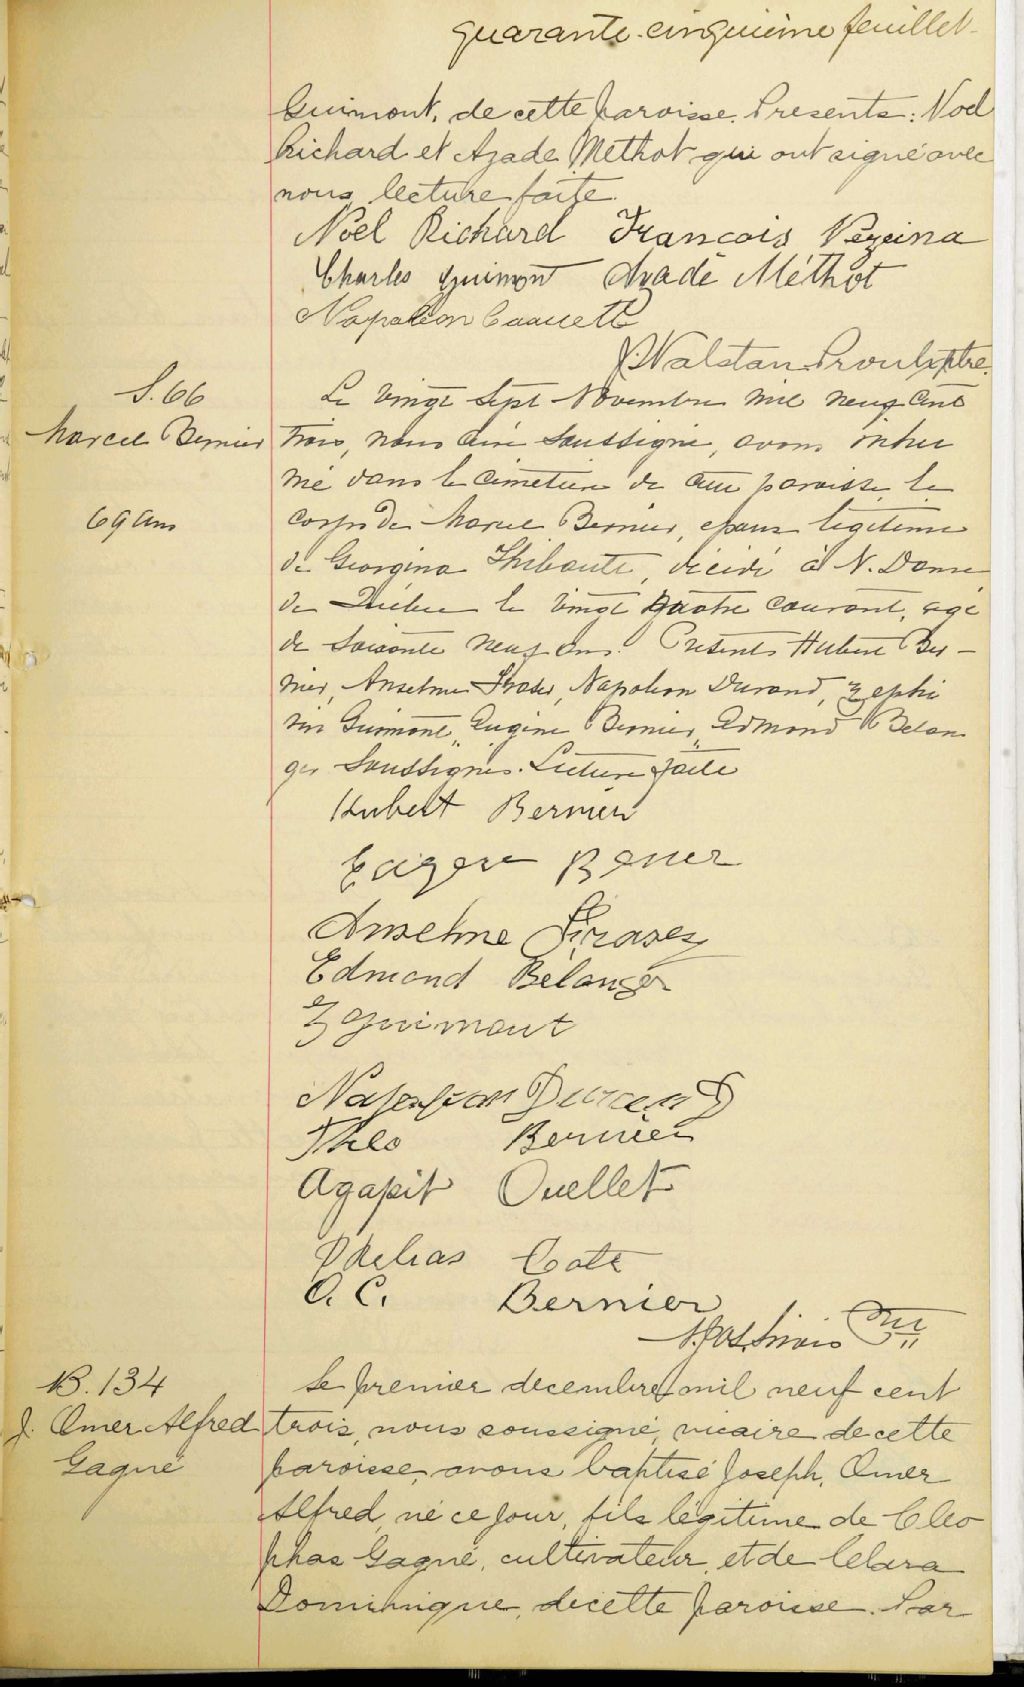 quarante-cinquième feuillet
Guimont, de cette paroisse. Presents: Noel
Richard et Azade Methot qui ont signé avec
nous, lecture faite.
Noël Richard François Vezeina
Charles Guimont Azade Méthot
Napoléon Caouette
J. Nalstan Proulx, ptre.
S. 66
Marcel Bernier
69 ans
Le vingt sept Novembre mil neuf cent
trois, nous curé soussigné, avons inhu
mé dans le cimetière de cette paroisse le
corps de Marcel Bernier, epoux légitime
de Georgina Thibault, décédé à N. Dame
de Québec le vingt quatre courant, agé
de soixante neuf ans. Présents Hubert Ber-
nier, Anselme Fraser, Napoléon Durand, Zephi
rin Guimont, Eugène Bernier, Edmond Belan
ger soussignés. Lecture faite
Hubert Bernier
Eugene Bernier
Anselme Fraser
Edmond Bélanger
Z Guimont
Napoleon Durand
Theo Bernier
Agapit Ouellet
Phelias Cote
O. C. Bernier
B. 134
J. Omer Alfred
Gagné
Le premier decembre mil neuf cent
trois, nous soussigné, vicaire de cette
paroisse, avons baptisé Joseph, Omer
Alfred, né ce jour, fils légitime de Cleo
phas Gagné, cultivateur, et de Celara
Dominique, de cette paroisse. Par